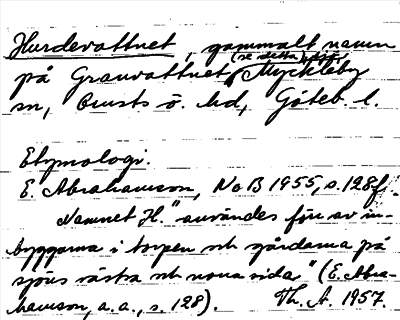 Hurdevattnet, gammalt namn
(se detta), [däri]
på Granvattnet, Myckleby
sn, Orusts ö. hd, Göteb. l.
Etymologi.
E. Abrahamson, NoB 1955, s. 128 f.
Namnet H. "användes förr av in-
byggarna i torpen och gårdarna på
sjöns västra och norra sida" (E. Abra-
hamson, a.a., s. 128). Th. A. 1957.